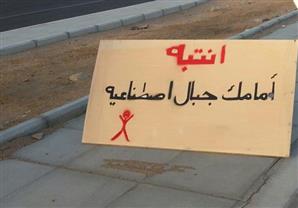 انتبه
أمامك جبال اصطناعيه